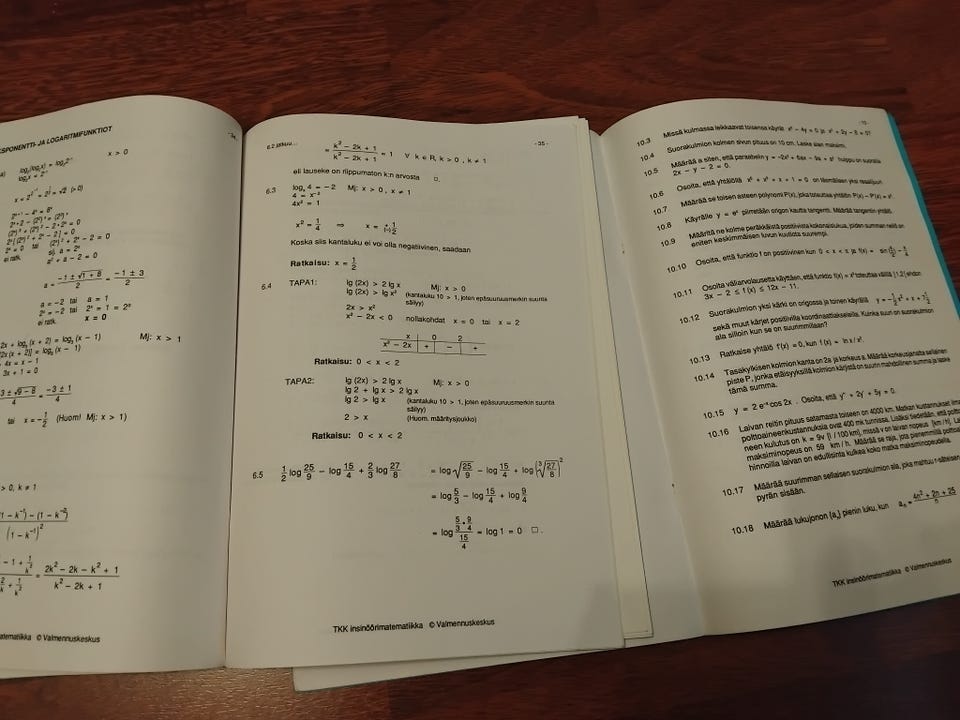 KSPONENTTI- JA LOGARITMIFUNKTIOT
- 34
x > 0
a) log₂(log₂x) = log₂2⁻¹
log₂x = 2⁻¹
a² + a - 2 = 0
a = (-1 ± √(1 + 8))/2 = (-1 ± 3)/2
a = -2 tai a = 1
2ˣ = -2 tai 2ˣ = 1 = 2⁰
ei ratk. x = 0
2x + log₃(x + 2) = log₃(x - 1) Mj: x > 1
(2x(x + 2)] = log₃(x - 1)
+ 4x = x - 1
3x + 1 = 0
3 ± √(9 - 8) = (-3 ± 1)/4
tai x = -1/2 (Huom! Mj: x > 1)
> 0, k ≠ 1
(1 - k⁻¹) - (1 - k⁻²)
(1 - k⁻¹)²
= (2k² - 2k - k² + 1)/(k² - 2k + 1)
atematiikka © Valmennuskeskus
6.2 jatkuu...
- 35 -
= (k² - 2k + 1)/(k² - 2k + 1) = 1 ∀ k ∈ R, k > 0, k ≠ 1
eli lauseke on riippumaton k:n arvosta □.
6.3 logₓ 4 = -2 Mj: x > 0, x ≠ 1
4 = x⁻²
4x² = 1
x² = 1/4 ⇒ x = (-)1/2
Koska siis kantaluku ei voi olla negatiivinen, saadaan
Ratkaisu: x = 1/2
6.4 TAPA1: lg (2x) > 2 lg x Mj: x > 0
lg (2x) > lg x² (kantaluku 10 > 1, joten epäsuuruusmerkin suunta säilyy)
2x > x²
x² - 2x < 0 nollakohdat x = 0 tai x = 2
x 0 2
x² - 2x + - +
Ratkaisu: 0 < x < 2
TAPA2: lg (2x) > 2 lg x Mj: x > 0
lg 2 + lg x > 2 lg x
lg 2 > lg x (kantaluku 10 > 1, joten epäsuuruusmerkin suunta
säilyy)
2 > x (Huom. määritysjoukko)
Ratkaisu: 0 < x < 2
6.5 1/2 log 25/9 - log 15/4 + 2/3 log 27/8 = log √(25/9) - log 15/4 + log (∛(27/8))²
= log 5/3 - log 15/4 + log 9/4
= log ((5/3 · 9/4)/(15/4)) = log 1 = 0 □.
TKK insinöörimatematiikka © Valmennuskeskus
10.3 Missä kulmassa leikkaavat toisensa käyrät x² - 4y = 0 ja x² + 2y - 6 = 0?
10.4 Suorakulmion kolmen sivun pituus on 10 cm. Laske alan maksimi.
10.5 Määrää a siten, että paraabelin y = -2x² + 6ax - 9a + a² huippu on suoralla
2x - y - 2 = 0.
10.6 Osoita, että yhtälöllä x⁵ + x³ + x + 1 = 0 on täsmälleen yksi reaalijuuri.
10.7 Määrää se toisen asteen polynomi P(x), joka toteuttaa yhtälön P(x) - P'(x) = x².
10.8 Käyrälle y = eˣ piirretään origon kautta tangentti. Määrää tangentin yhtälö.
10.9 Määritä ne kolme peräkkäistä positiivista kokonaislukua, joiden summan neliö on
eniten keskimmäisen luvun kuutiota suurempi.
10.10 Osoita, että funktio f on positiivinen kun 0 < x < π ja f(x) =
10.11 Osoita väliarvolausetta käyttäen, että funktio f(x) = x³ toteuttaa välillä ]1,2[ ehdon
3x - 2 ≤ f(x) ≤ 12x - 11.
10.12 Suorakulmion yksi kärki on origossa ja toinen käyrällä
sekä muut kärjet positiivilla koordinaattiakseleilla. Kuinka suuri on suorakulmion
ala silloin kun se on suurimmillaan?
10.13 Ratkaise yhtälö f'(x) = 0, kun f(x) = ln x/x.
10.14 Tasakylkisen kolmion kanta on 2a ja korkeus a. Määrää korkeusjanalta sellainen
piste P, jonka etäisyyksillä kolmion kärjistä on suurin mahdollinen summa ja laske
tämä summa.
10.15 y = 2 e⁻ˣ cos 2x. Osoita, että y'' + 2y' + 5y = 0.
10.16 Laivan reitin pituus satamasta toiseen on 4000 km. Matkan kustannukset ilman
polttoaineenkustannuksia ovat 400 mk tunnissa. Lisäksi tiedetään, että poltto
neen kulutus on k = 9v [l / 100 km], missä v on laivan nopeus [km / h]. La
maksiminopeus on 59 km / h. Määrää se raja, jota pienemmillä polttoa
hinnoilla laivan on edullisinta kulkea koko matka maksiminopeudella.
10.17 Määrää suurimman sellaisen suorakulmion ala, joka mahtuu r-säteisen
pyrän sisään.
10.18 Määrää lukujonon (aₙ) pienin luku, kun aₙ = (4n² + 2n + 25)/n
TKK insinöörimatematiikka © Valmennuskeskus